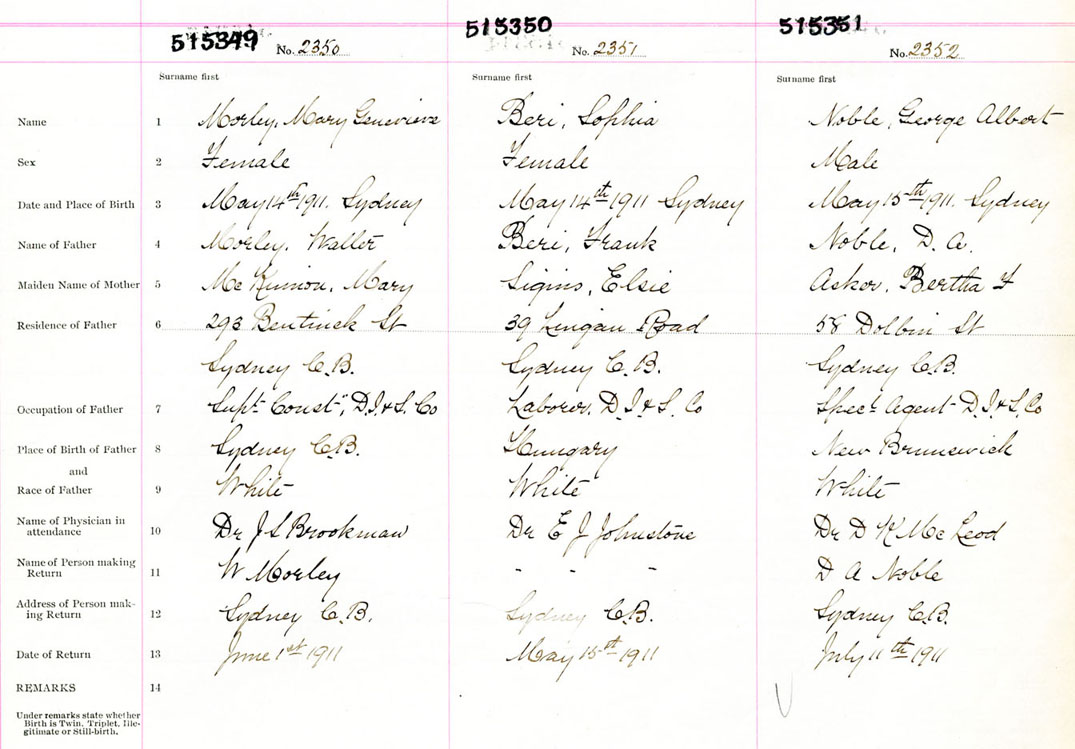 515349 515350 515351
No. 2350 No. 2351 No. 2352
Surname first Surname first Surname first
Name 1 Morley, Mary Genevieve Beri, Sophia Noble, George Albert
Sex 2 Female Female Male
Date and Place of Birth 3 May 14th 1911. Sydney May 14th 1911 Sydney May 15th 1911. Sydney
Name of Father 4 Morley, Walter Beri, Frank Noble, D. A.
Maiden Name of Mother 5 McKinnon, Mary Sigins, Elsie Asker, Bertha F
Residence of Father 6 293 Bentinck St 39 Lingan Road 58 Dolbin St
Sydney C.B. Sydney C.B. Sydney C.B.
Occupation of Father 7 Supt. Const", D.I.&S. Co Laborer, D.I.&S. Co Specl Agent - D.I.&S. Co
Place of Birth of Father 8 Sydney C.B. Hungary New Brunswick
and
Race of Father 9 White White White
Name of Physician in
attendance 10 Dr J S Brookman Dr E J Johnstone Dr D K McLeod
Name of Person making
Return 11 W Morley " " " D A Noble
Address of Person mak-
ing Return 12 Sydney C.B. Sydney C.B. Sydney C.B.
Date of Return 13 June 1st 1911 May 15th 1911 July 11th 1911
REMARKS 14
Under remarks state whether
Birth is Twin, Triplet, Ille-
gitimate or Still-birth.